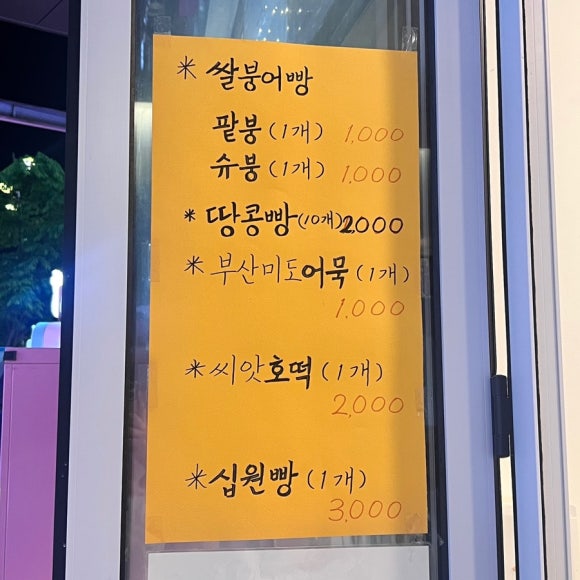 * 쌀붕어빵
팥붕 (1개) 1,000
슈붕 (1개) 1,000
* 땅콩빵 (10개) 2,000
* 부산미도어묵 (1개)
1,000
* 씨앗호떡 (1개)
2,000
* 십원빵 (1개)
3,000